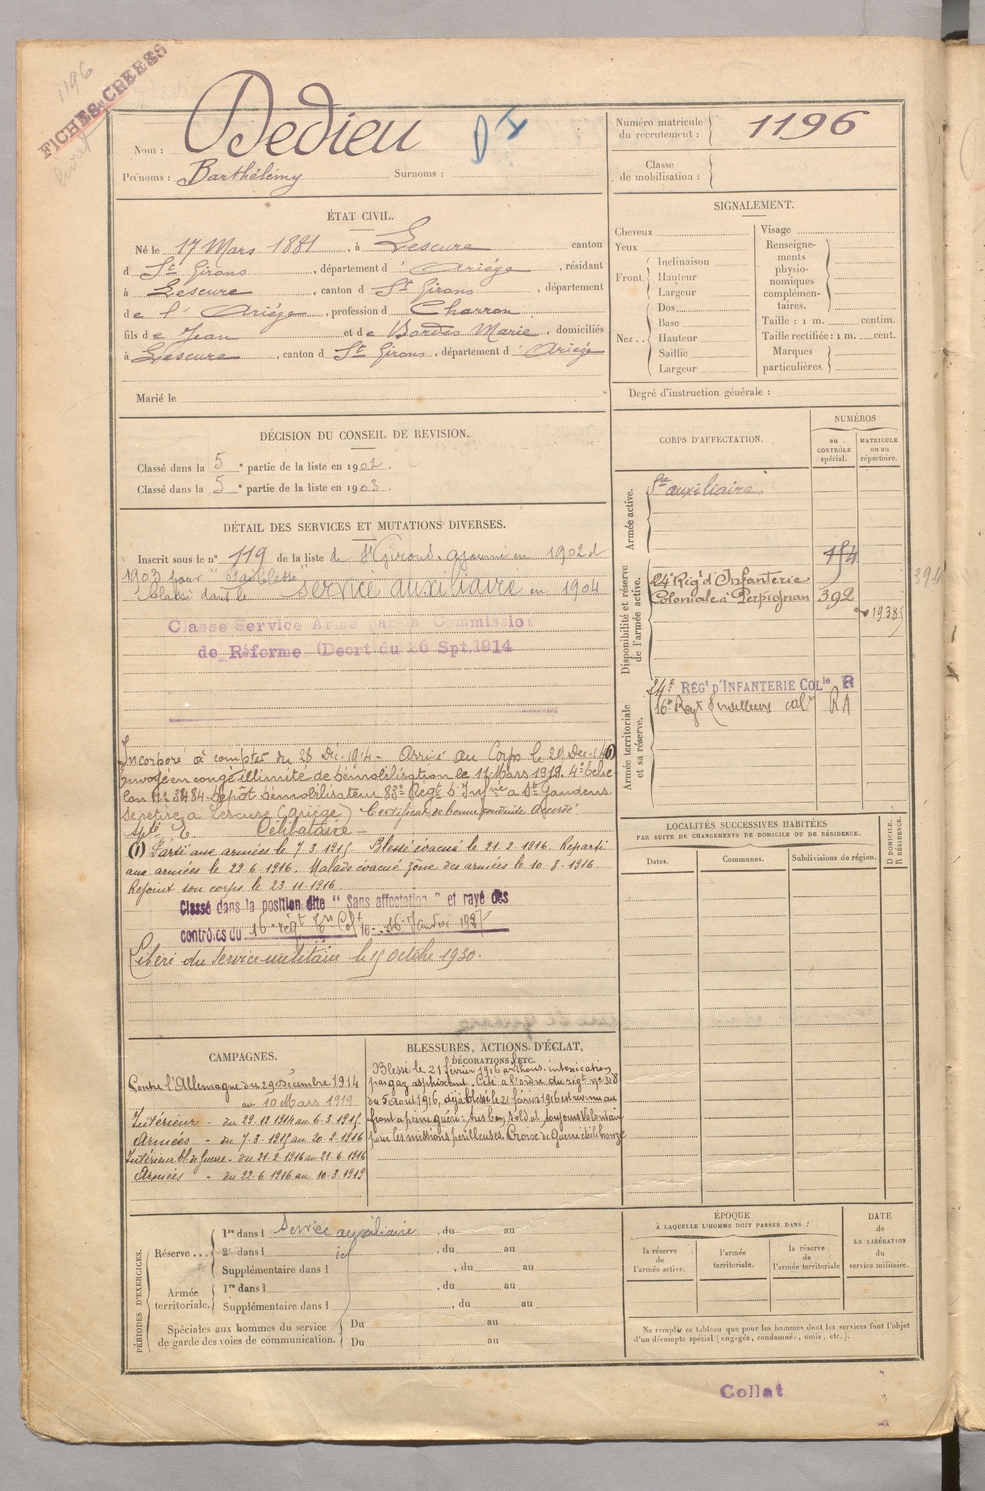 1196
FICHES CREEES
Nom : Dedieu
Prénoms : Barthélémy Surnoms :
Numéro matricule du recrutement : 1196
Classe de mobilisation :
ÉTAT CIVIL.
Né le 17 Mars 1881, à Lescure canton
d St Girons, département d'Ariége, résidant
à Lescure, canton d St Girons, département
de l'Ariége, profession d Charron
fils de Jean et de Bordes Marie, domiciliés
à Lescure, canton d St Girons, département d'Ariége
Marié le
SIGNALEMENT.
Cheveux
Yeux
Front Inclinaison
Hauteur
Largeur
Nez Dos
Base
Hauteur
Saillie
Largeur
Visage
Renseignements physionomiques complémentaires.
Taille : 1 m. centim.
Taille rectifiée : 1 m. cent.
Marques particulières.
Degré d'instruction générale :
DÉCISION DU CONSEIL DE REVISION.
Classé dans la 5e partie de la liste en 1902.
Classé dans la 5e partie de la liste en 1903.
DÉTAIL DES SERVICES ET MUTATIONS DIVERSES.
Inscrit sous le n° 119 de la liste d St Girons. ajourné en 1902 et
1903 pour "faiblesse"
Classé dans le service auxiliaire en 1904
Classé Service Armé par la Commission
de Réforme (Decrt du 26 Spt. 1914
Incorporé à compter du 28 Déc. 1914 - Arrivé au Corps le 29 Déc. 14 (1)
Envoyé en congé illimité de démobilisation le 11 Mars 1919. 4e Echelon
Dépôt démobilisateur 83e Regt d'Infrie a St Gaudens
Se retire a Lescure (Ariége) Certificat de bonne conduite accordé
Célibataire
(1) Parti aux armées le 7.3.1915. Blessé évacué le 21.2.1916. Reparti
aux armées le 22.6.1916. Malade évacué zone des armées le 10.8.1916.
Rejoint son corps le 23.11.1916.
Classé dans la position dite "Sans affectation" et rayé des
contrôles du 16e régt
Libéré du service militaire le 15 octobre 1930.
CORPS D'AFFECTATION.
NUMÉROS
au CONTRÔLE spécial.
MATRICULE ou au répertoire.
Armée active.
Sce auxiliaire
Disponibilité et réserve de l'armée active.
154
24e Régt d'Infanterie
Coloniale à Perpignan 392
Armée territoriale et sa réserve.
24e RÉGt D'INFANTERIE COLle R
16e Regt Tirailleurs col RA
LOCALITÉS SUCCESSIVES HABITÉES
PAR SUITE DE CHANGEMENTS DE DOMICILE OU DE RÉSIDENCE.
Dates. Communes. Subdivisions de région.
D DOMICILE. R RÉSIDENCE.
CAMPAGNES.
Contre l'Allemagne du 29 Décembre 1914
au 10 Mars 1919
Intérieur - du 29.12.1914 au 6.3.1915
Armées - du 7.3.1915 au 20.2.1916
Intérieur Bl. de Guerre - du 21.2.1916 au 21.6.1916
Armées - du 22.6.1916 au 10.3.1919
BLESSURES, ACTIONS D'ÉCLAT,
DÉCORATIONS, ETC.
Blessé le 21 février 1916 a Lihons, intoxication
par gaz asphixiant. Cité a l'ordre du régt n° 318
du 5 Août 1916, déjà blessé le 21 février 1916 est revenu au
front a peine guéri : très bon soldat toujours volontaire
pour les missions périlleuses. Croix de Guerre étoile bronze
PÉRIODES D'EXERCICES.
Réserve 1re dans l service auxiliaire, du au
2e dans l, du au
Supplémentaire dans l, du au
Armée territoriale. 1re dans l, du au
Supplémentaire dans l, du au
Spéciales aux hommes du service de garde des voies de communication. Du au
Du au
ÉPOQUE
À LAQUELLE L'HOMME DOIT PASSER DANS :
la réserve de l'armée active.
l'armée territoriale.
la réserve de l'armée territoriale
DATE de LA LIBÉRATION du service militaire.
Ne remplir ce tableau que pour les hommes dont les services font l'objet
d'un décompte spécial (engagés, condamné, omis, etc.).
Collat